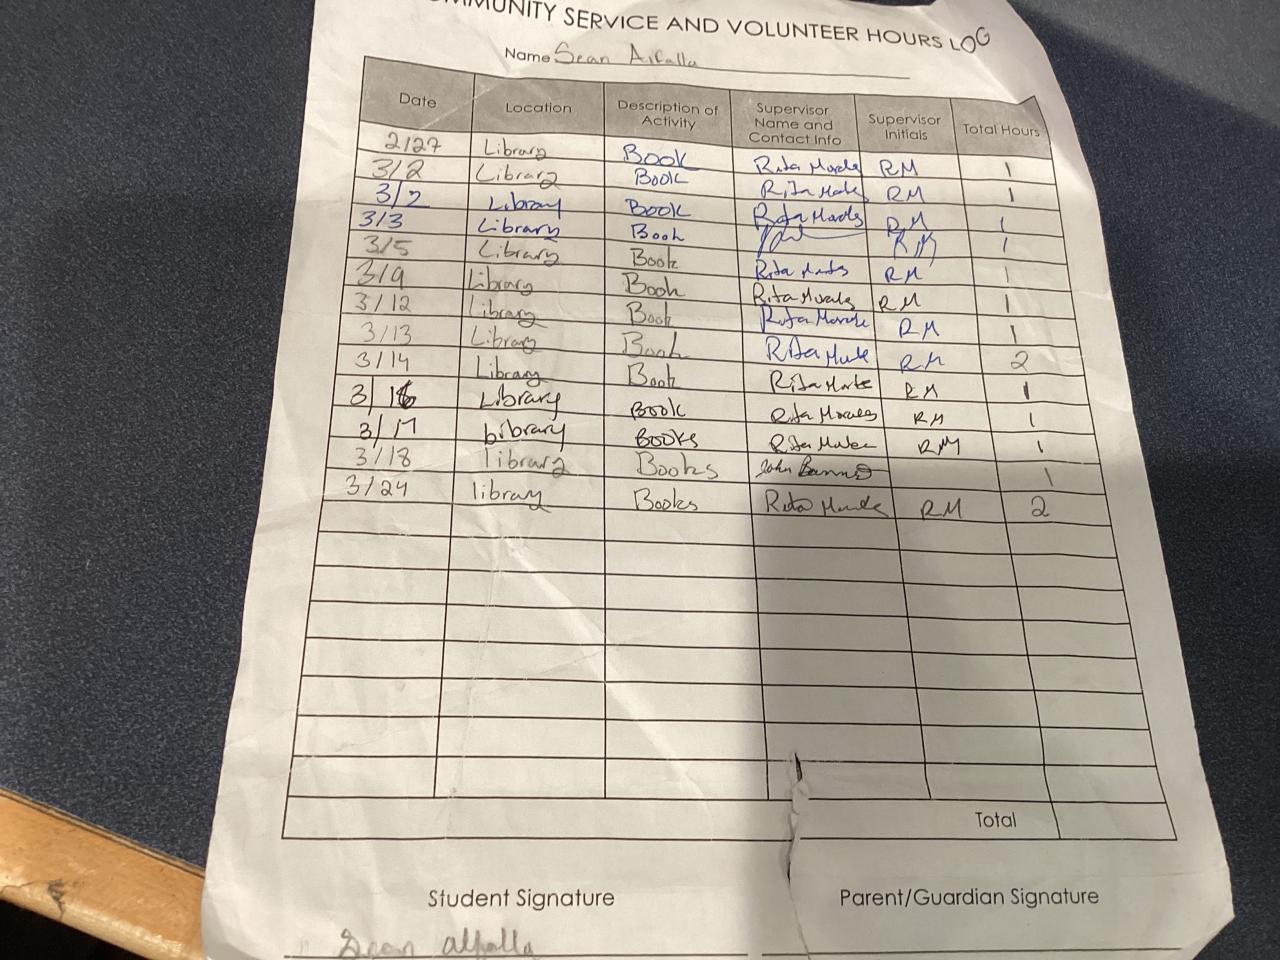 COMMUNITY SERVICE AND VOLUNTEER HOURS LOG
Name Sean Alfalla
Date Location Description of Activity Supervisor Name and Contact Info Supervisor Initials Total Hours
2/27 Library Book Rita Morales RM 1
3/2 Library Book Rita RM 1
3/2 Library Book Rita Morales RM 1
3/3 Library Book RM 1
3/5 Library Book Rita RM 1
3/9 Library Book Rita Morales RM 1
3/12 Library Book Rita RM 1
3/13 Library Book Rita RM 2
3/14 Library Book Rita RM 1
3/16 Library Book Rita Morales RM 1
3/17 Library Books Rita RM 1
3/18 library Books John 1
3/24 library Books Rita RM 2
Total
Student Signature Parent/Guardian Signature
Sean alfalla